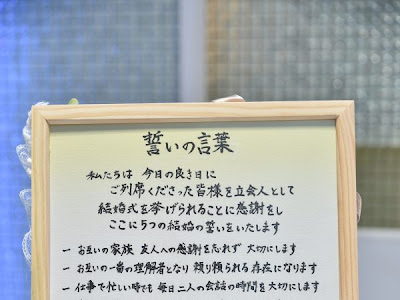 誓いの言葉
私たちは 今日の良き日に
ご列席くださった皆様を立会人として
結婚式を挙げられることに感謝をし
ここに5つの結婚の誓いをいたします
一 お互いの家族 友人への感謝を忘れず 大切にします
一 お互いの一番の理解者となり 頼り頼られる存在になります
一 仕事で忙しい時でも 毎日二人の会話の時間を大切にします